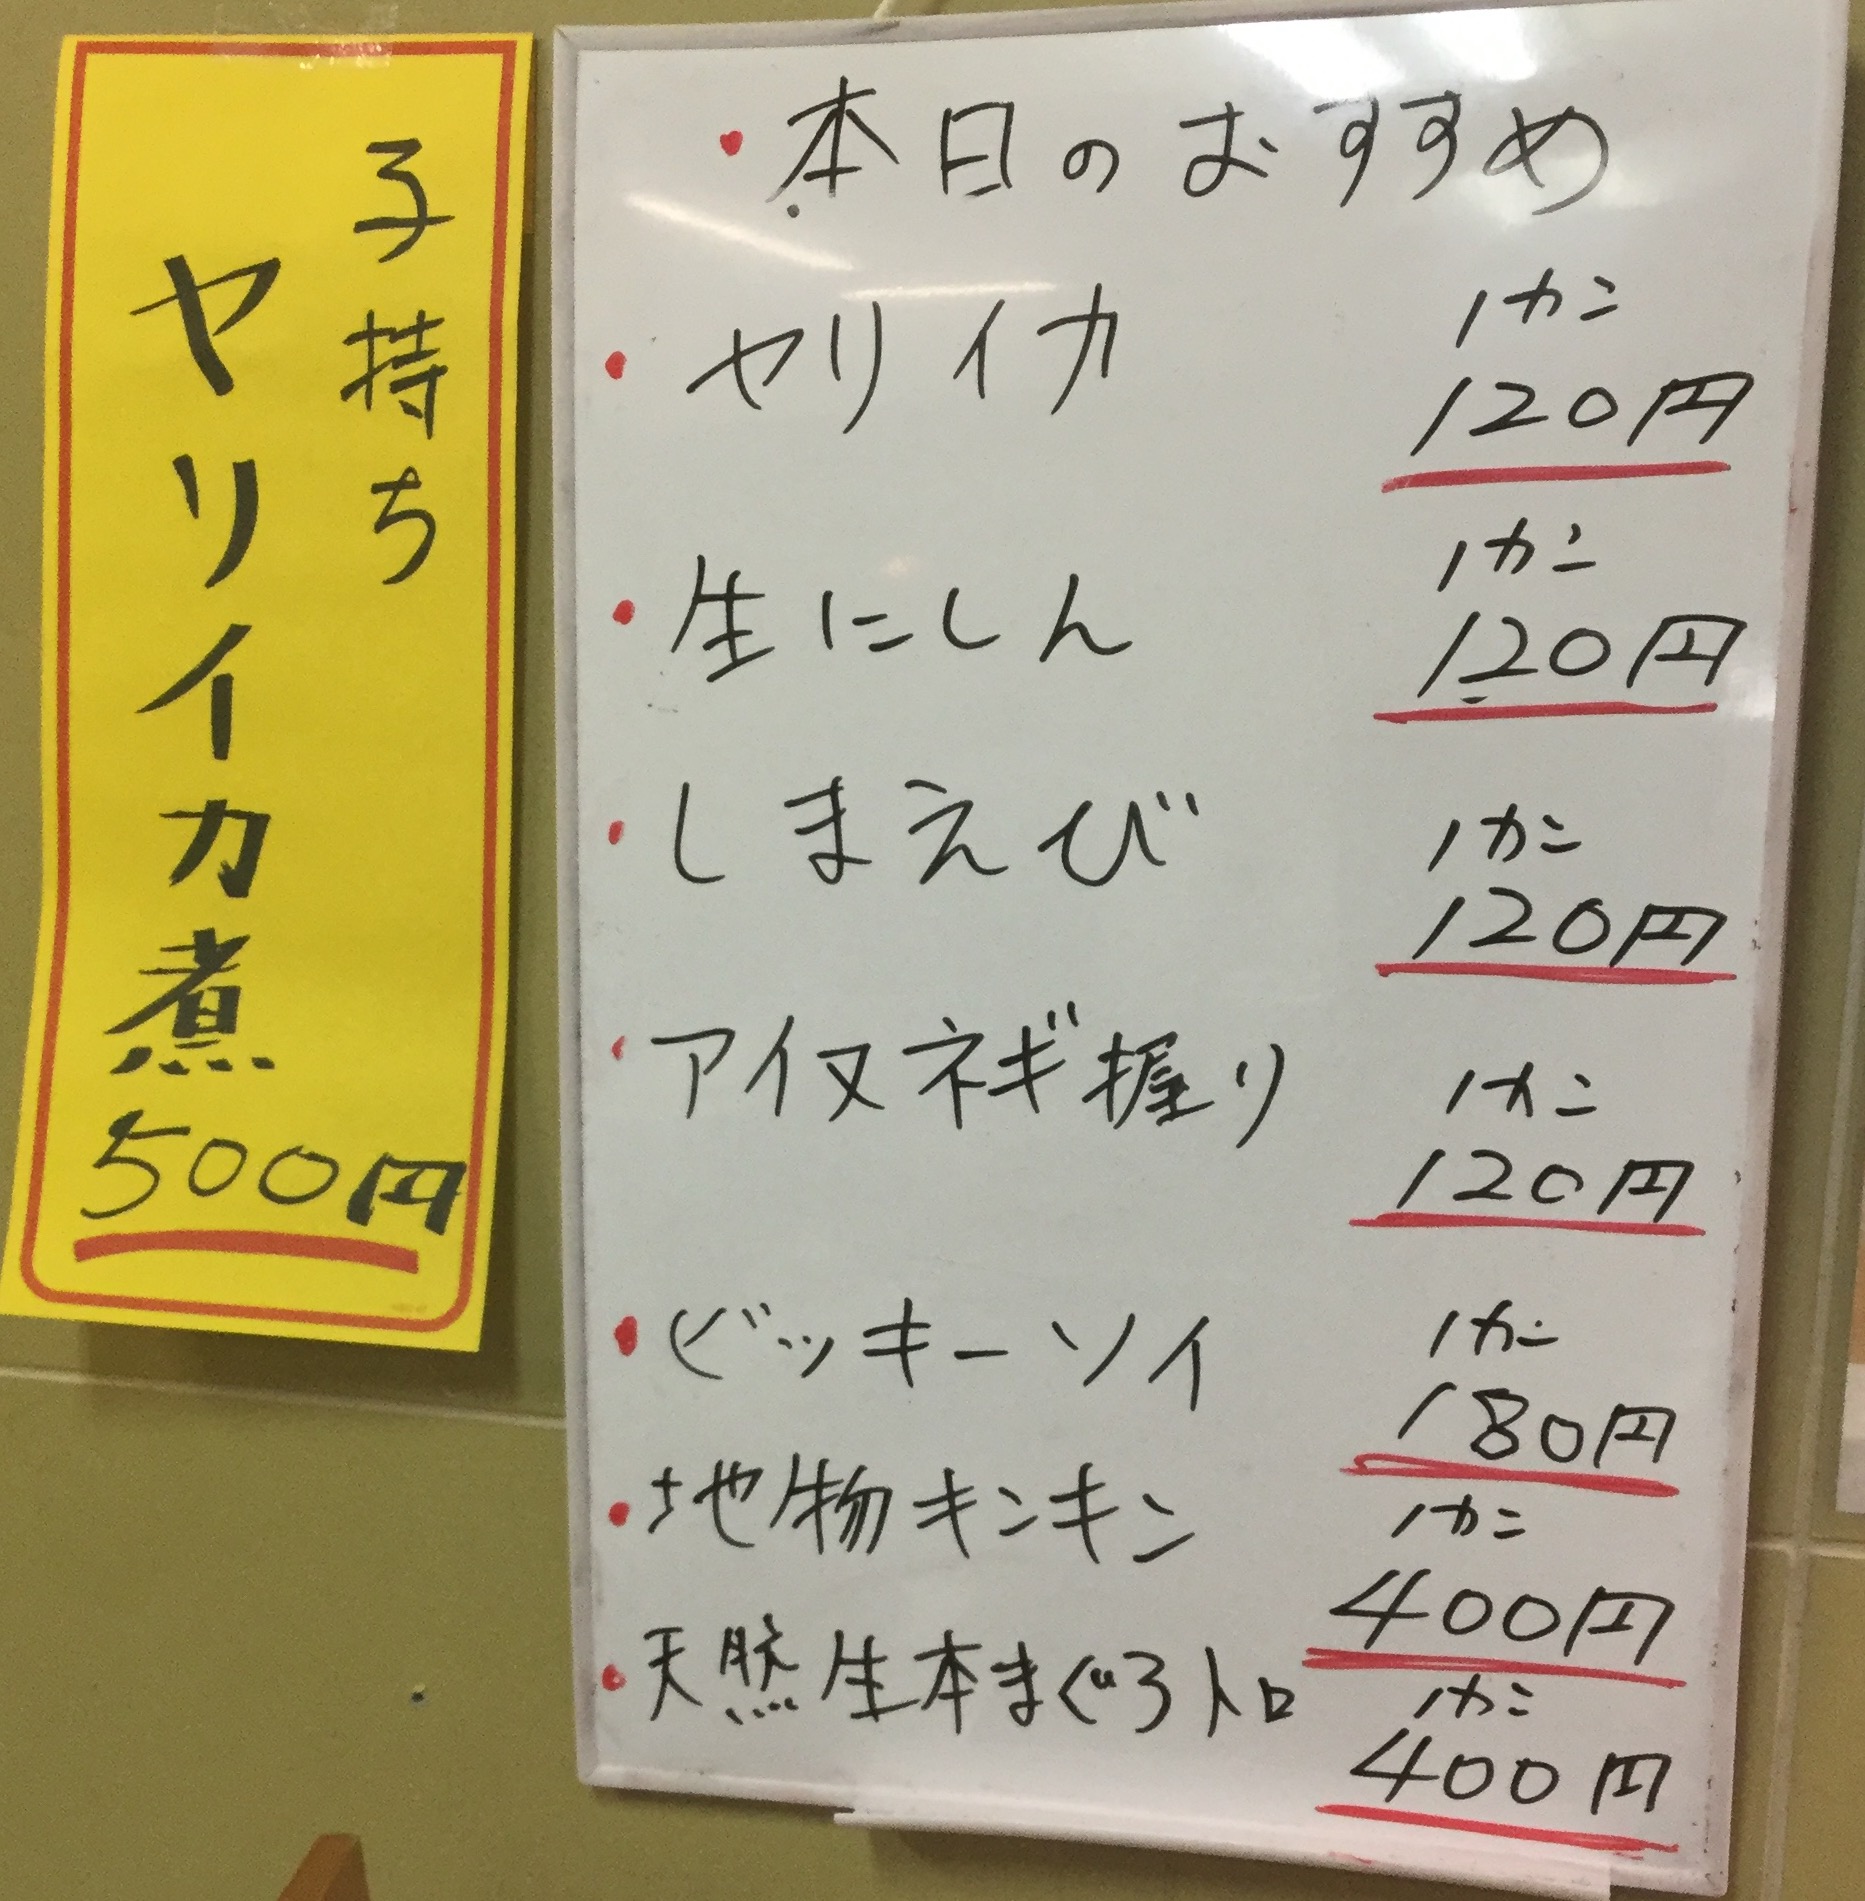 子持ち
ヤリイカ煮
500円
・本日のおすすめ
・ヤリイカ 1カン
120円
・生にしん 1カン
120円
・しまえび 1カン
120円
・アイヌネギ握り 1カン
120円
・ビッキーソイ 1カン
180円
・地物キンキン 1カン
400円
・天然生本まぐろトロ 1カン
400円